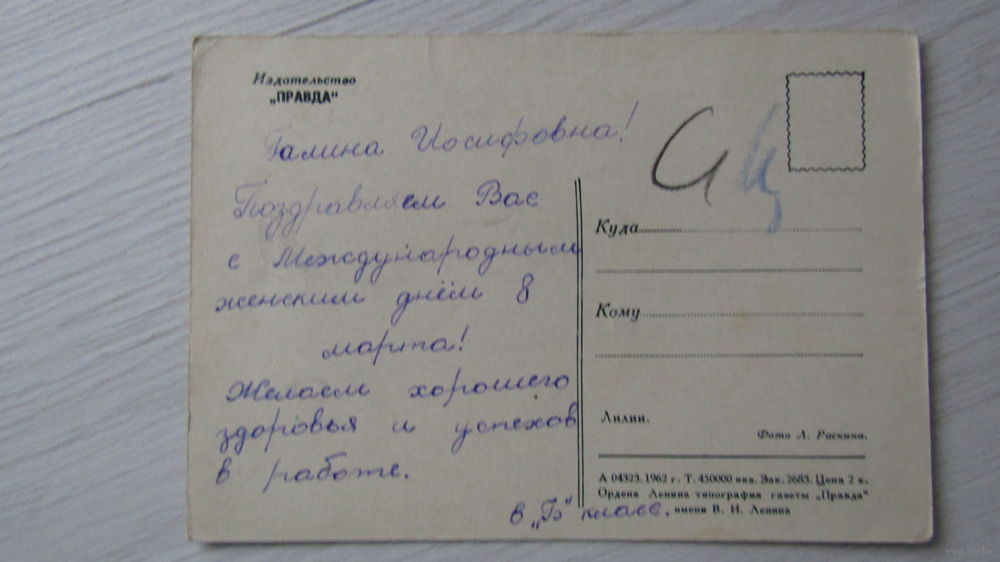 Издательство
„ПРАВДА“
Галина Иосифовна!
Поздравляем Вас
с Международным
женским днём 8
марта!
Желаем хорошего
здоровья и успехов
в работе.
6 „Б“ класс.
Куда
Кому
Лилии.
Фото Л. Раскина.
А 04323. 1962 г. Т. 450000 экз. Зак. 2683. Цена 2 к.
Ордена Ленина типография газеты „Правда“
имени В. И. Ленина